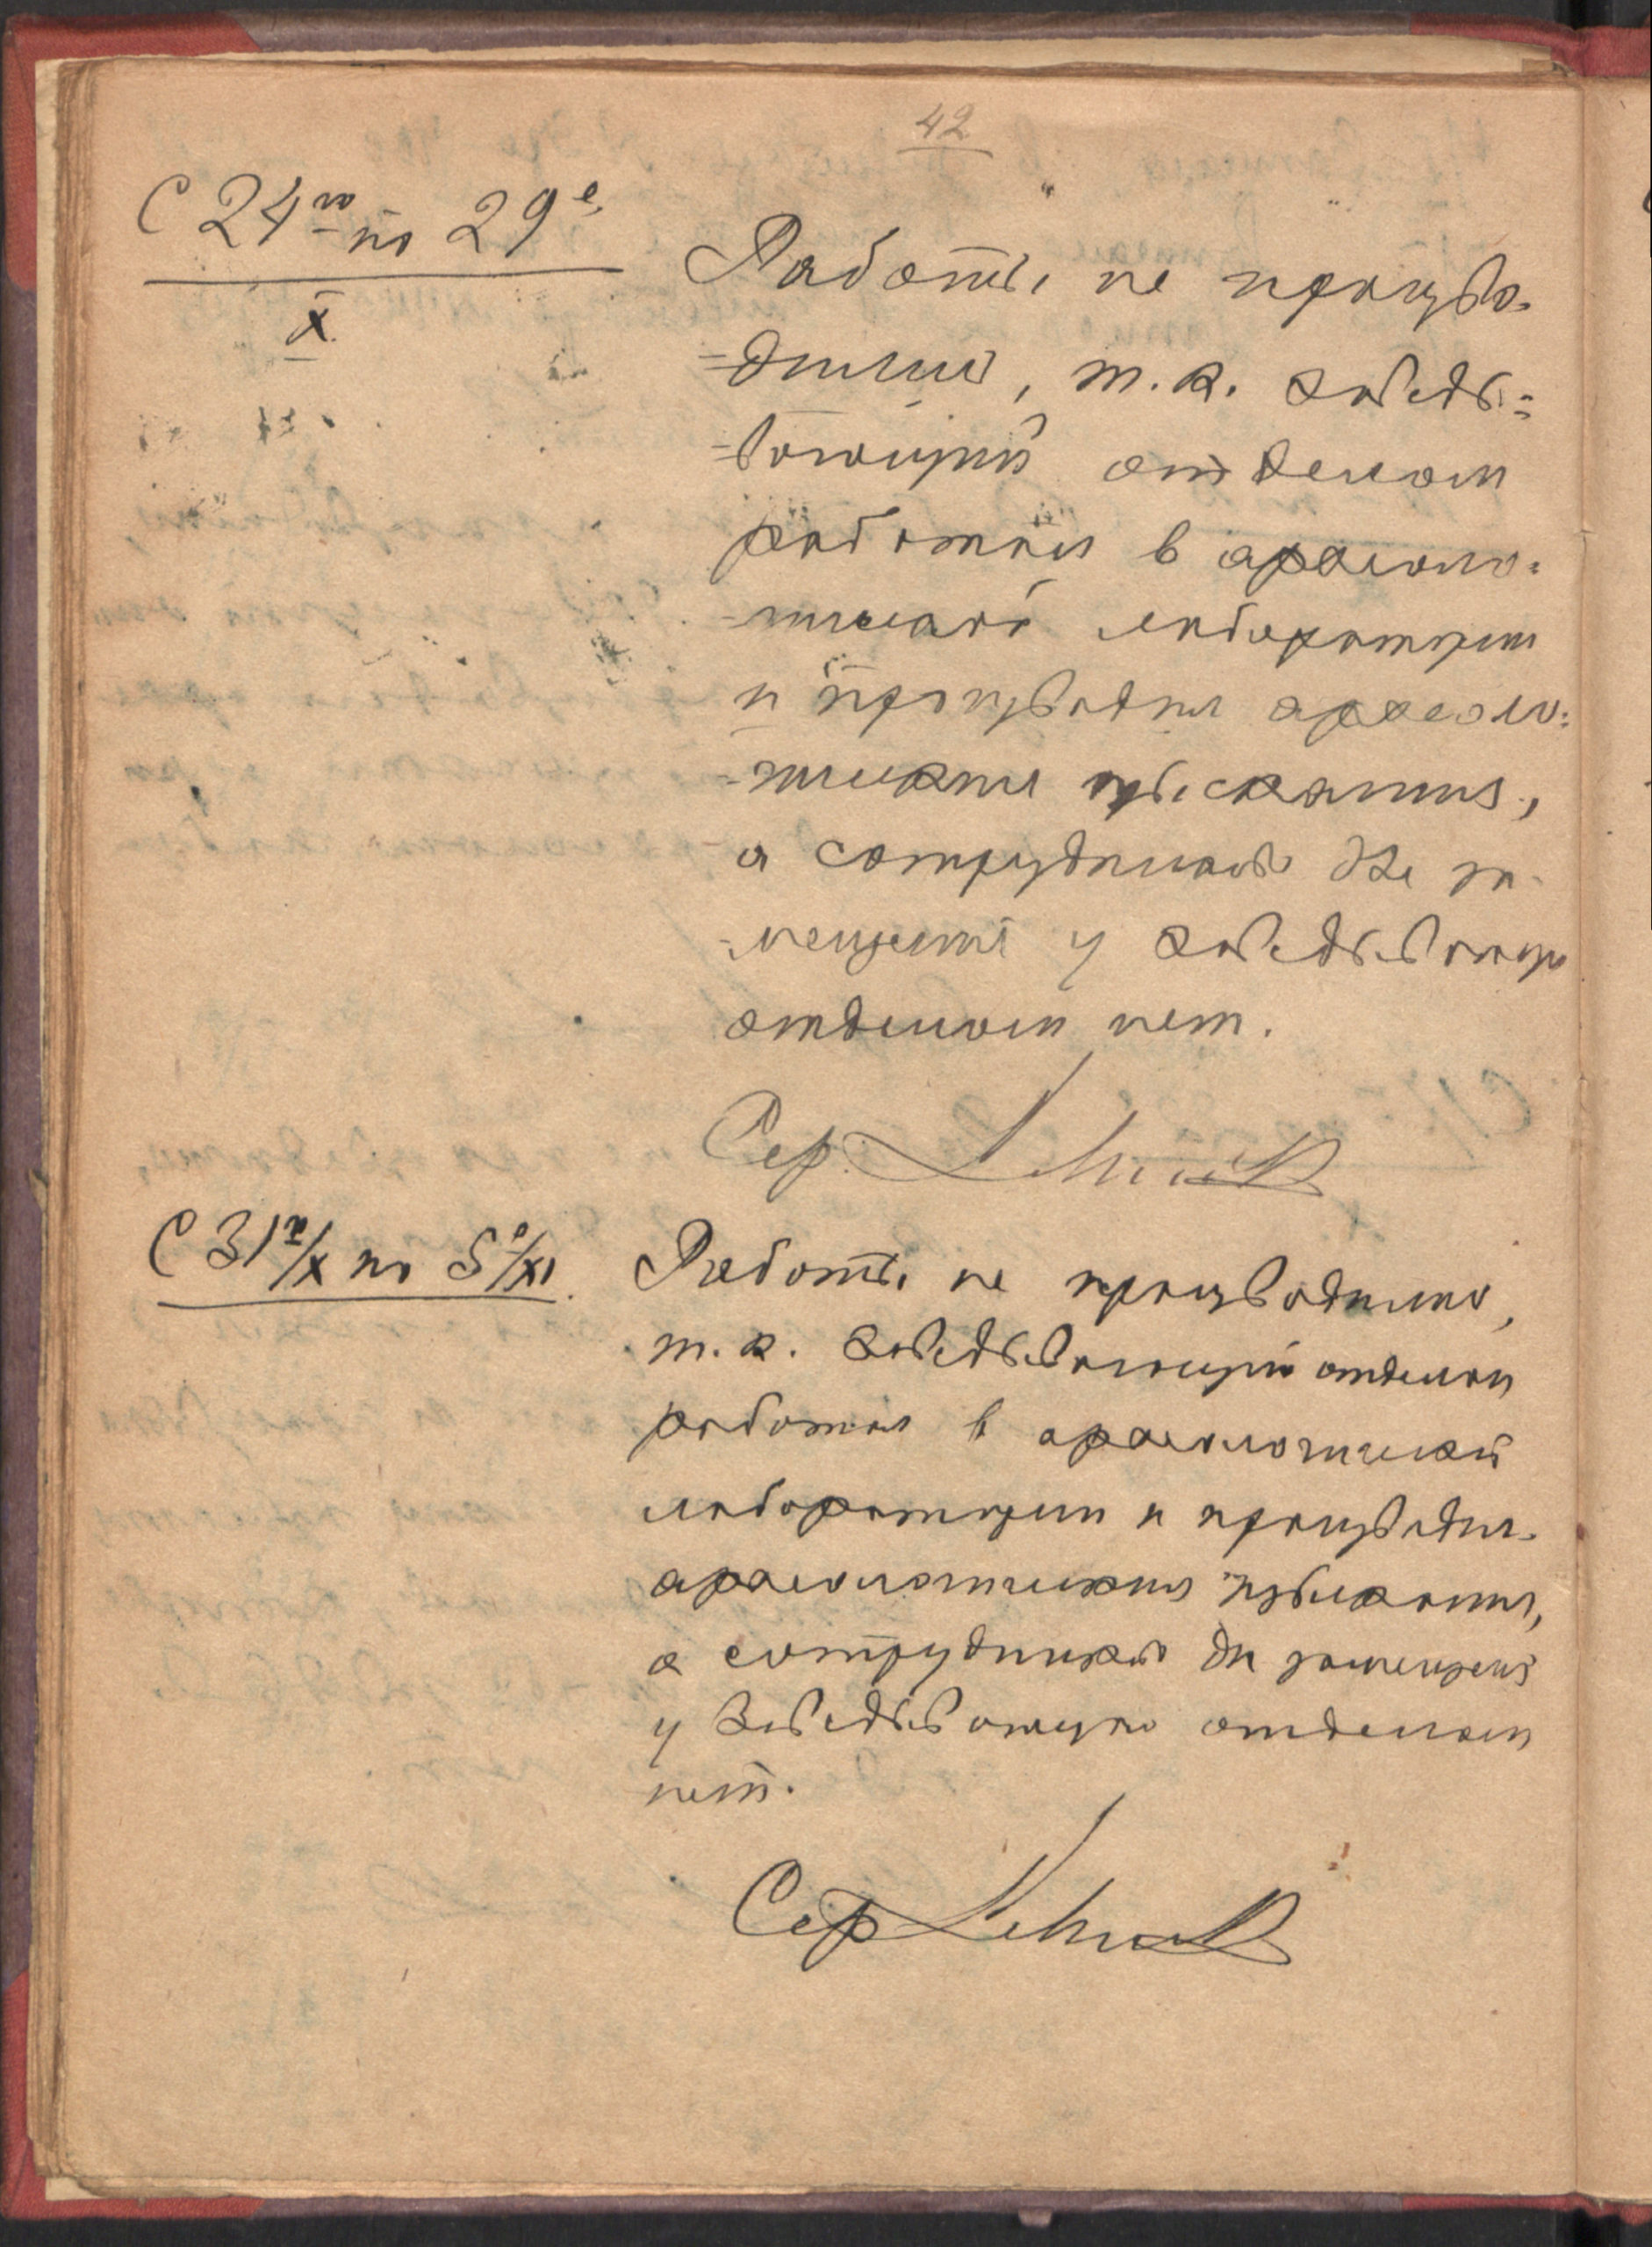 42
С 24го по 29е
X
Работы не произво-
-дились, т.к. заведы=
=вающий отделом
работал в археоло=
-гической лаборатории
и производил археоло=
-гические изыскания,
а сотрудников для за-
-мещения у заведывающего
отделом нет.
Сер.
С 31го/X по 5е/XI.
Работы не производились,
т.к. заведывающий отделом
работал в археологической
лаборатории и производил
археологические изыскания,
а сотрудников для замещения
у заведывающего отделом
нет.
Сер